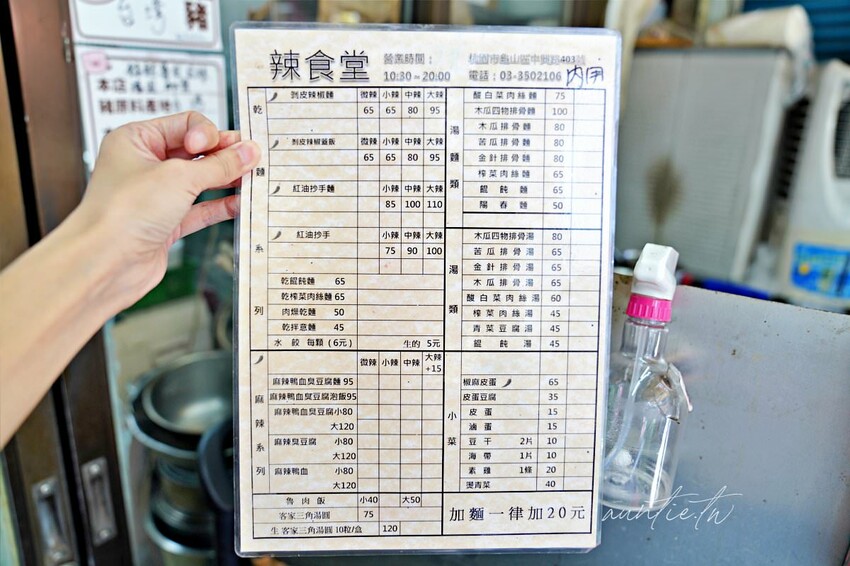 台灣豬
本店
豬原料產地
辣食堂
營業時間：
10:30~20:00
桃園市龜山區中興路403號
電話：03-3502106 內用
乾麵系列
剝皮辣椒麵 微辣 小辣 中辣 大辣
65 65 80 95
剝皮辣椒蓋飯 微辣 小辣 中辣 大辣
65 65 80 95
紅油抄手麵 小辣 中辣 大辣
85 100 110
紅油抄手 小辣 中辣 大辣
75 90 100
乾餛飩麵 65
乾榨菜肉絲麵 65
肉燥乾麵 50
乾拌意麵 45
水餃 每顆 (6元) 生的 5元
麻辣系列
微辣 小辣 中辣 大辣+15
麻辣鴨血臭豆腐麵 95
麻辣鴨血臭豆腐泡飯95
麻辣鴨血臭豆腐小80
大120
麻辣臭豆腐 小80
大120
麻辣鴨血 小80
大120
魯肉飯 小40 大50
客家三角湯圓 75
生 客家三角湯圓 10粒/盒 120
湯麵類
酸白菜肉絲麵 75
木瓜四物排骨麵 100
木瓜排骨麵 80
苦瓜排骨麵 80
金針排骨麵 80
榨菜肉絲麵 65
餛飩麵 65
陽春麵 50
湯類
木瓜四物排骨湯 80
苦瓜排骨湯 65
金針排骨湯 65
木瓜排骨湯 65
酸白菜肉絲湯 60
榨菜肉絲湯 45
青菜豆腐湯 45
餛飩湯 45
小菜
椒麻皮蛋 65
皮蛋豆腐 35
皮蛋 15
滷蛋 15
豆干 2片 10
海帶 1片 10
素雞 1條 20
燙青菜 40
加麵一律加20元
auntie.tw